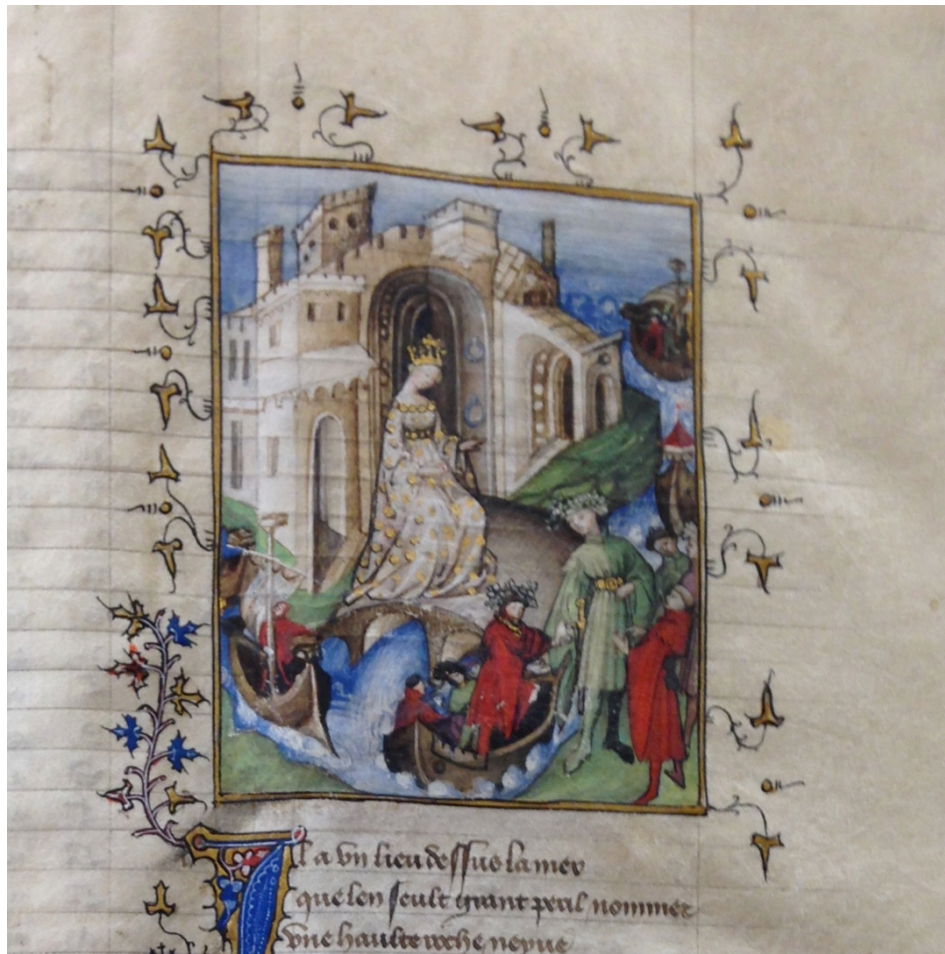 Il a vn lieu dessus la mer
que len seult grant peril nommer
vne haulte roche neyue